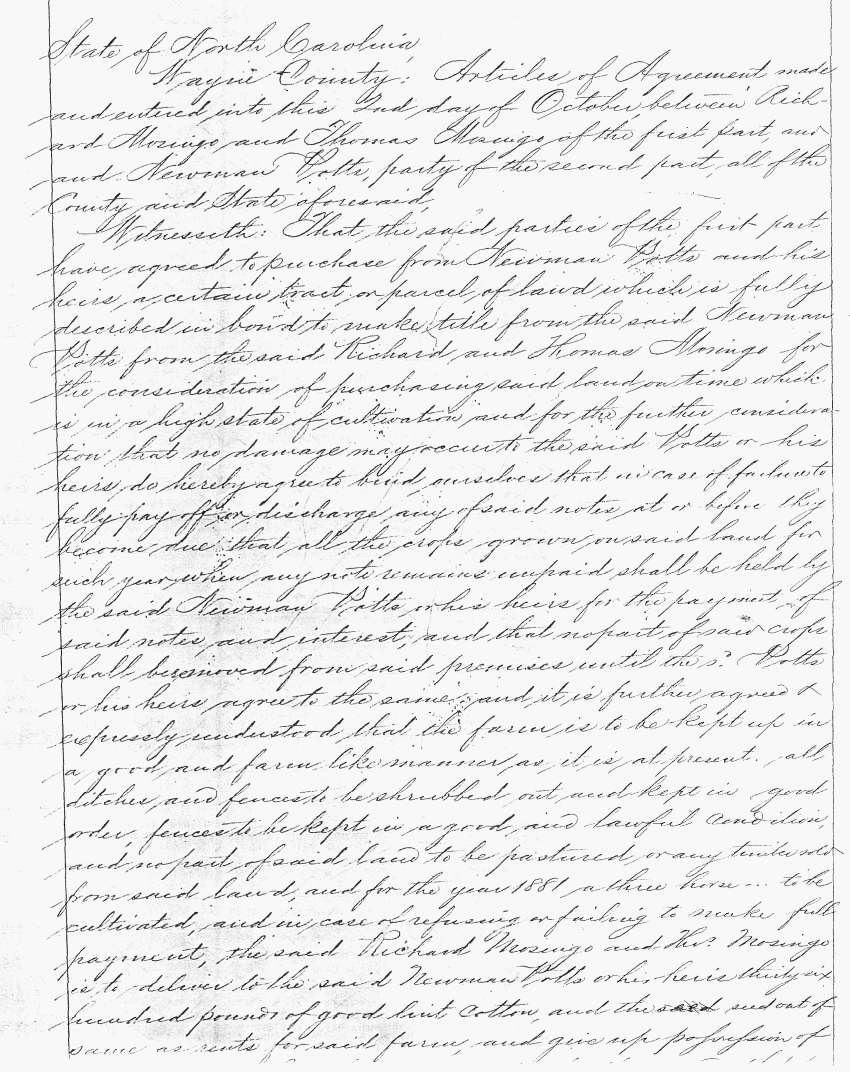 State of North Carolina,
Wayne County: Articles of Agreement made
and entered into this 2nd day of October, between Rich-
ard Mosingo and Thomas Mosingo of the first part, and
and Newman Potts, party of the second part, all of the
County and State aforesaid,
Witnesseth: That the said parties of the first part
have agreed to purchase from Newman Potts and his
heirs, a certain tract, or parcel, of land which is fully
described in bond to make title from the said Newman
Potts from the said Richard, and Thomas Mosingo for
the consideration of purchasing said land on time which
is in a high state of cultivation and for the further considera-
tion that no damage may occur to the said Potts or his
heirs, do hereby agree to bind ourselves that in case of failure to
fully pay off or discharge any of said notes, at or before they
become due that all the crops grown on said land for
such year when any note remains unpaid shall be held by
the said Newman Potts, or his heirs for the payment of
said notes and interest, and that no part of said crops
shall be removed from said premises until the sd. Potts
or his heirs agree to the same; and it is further agreed &
expressly understood that the farm is to be kept up in
a good and farm like manner, as it is at present. all
ditches, and fences to be shrubbed out, and kept in good
order, fences to be kept in a good and lawful condition,
and no part of said land to be pastured, or any timber sold
from said land, and for the year 1881 a three horse ... to be
cultivated, and in case of refusing or failing to make full
payment, the said Richard Mosingo and Thos. Mosingo
is to deliver to the said Newman Potts or his heirs thirty six
hundred pounds of good lint cotton, and the seed out of
same as rents for said farm, and give up possession of